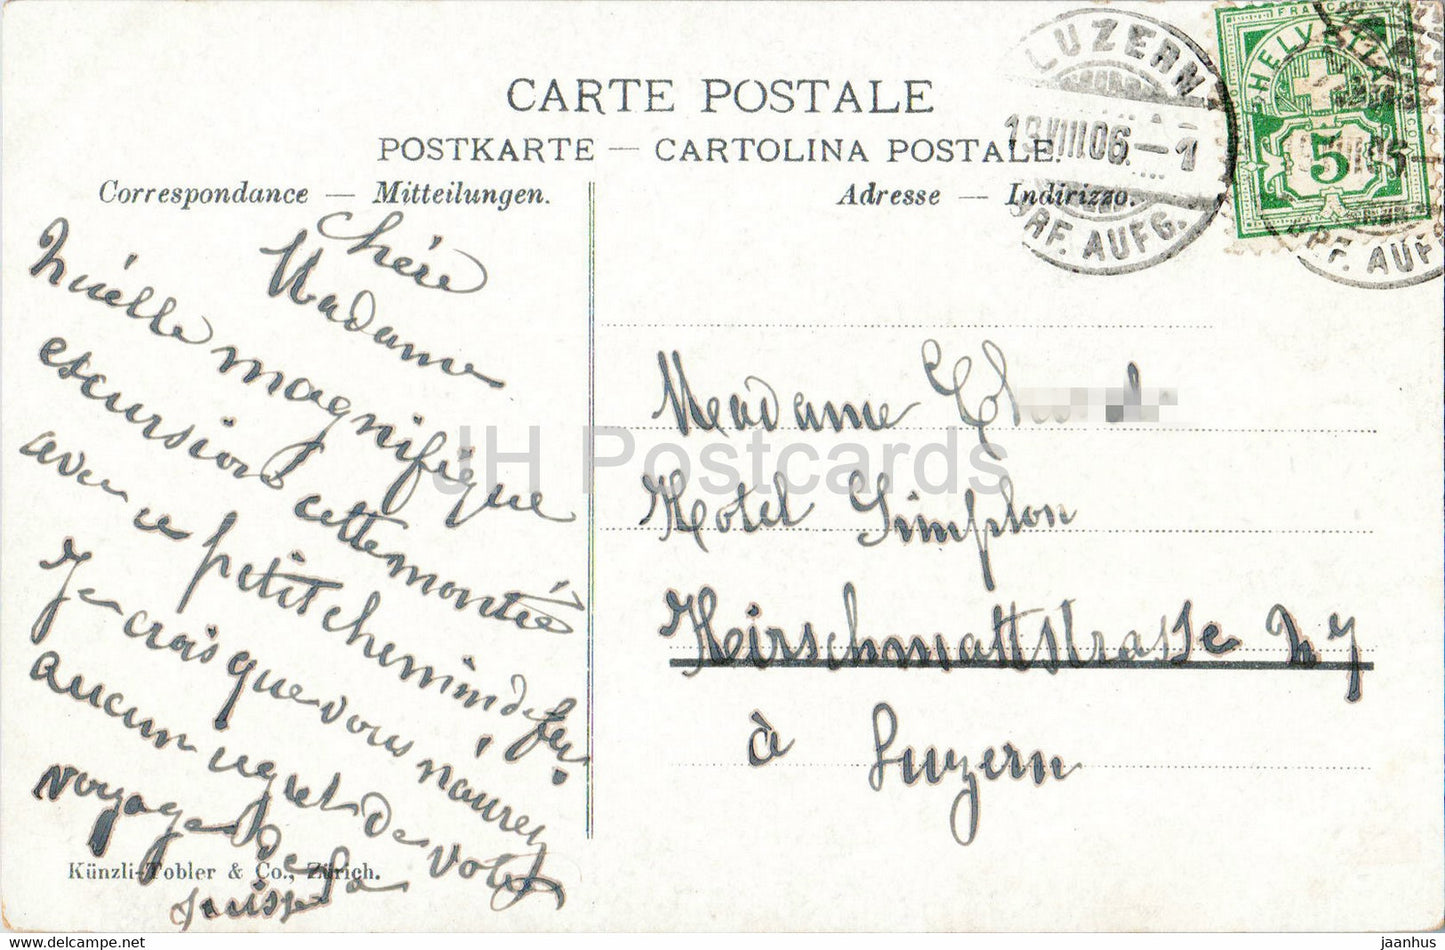 CARTE POSTALE
POSTKARTE — CARTOLINA POSTALE.
Correspondance — Mitteilungen.
Adresse — Indirizzo.
LUZERN
19.VIII.06.—1
BRF. AUFG.
FRANCO
HELVETIA
5
BRF. AUFG.
Chère
Madame
magnifique
excursion cette montée
avec ce petit chemin de fer.
Je crois que vous n'aurez
aucun regret de votre
voyage de la
Suisse
Madame
Hotel Simplon
Heirschmattstrasse
à Luzern
Künzli-Tobler & Co., Zürich.
JH Postcards
jaanhus